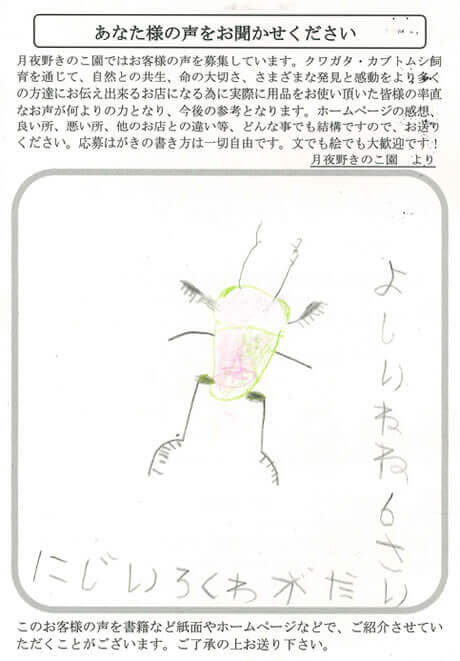 あなた様の声をお聞かせください
月夜野きのこ園ではお客様の声を募集しています。クワガタ・カブトムシ飼
育を通じて、自然との共生、命の大切さ、さまざまな発見と感動をより多く
の方達にお伝え出来るお店になる為に実際に用品をお使い頂いた皆様の率直
なお声が何よりの力となり、今後の参考となります。ホームページの感想、
良い所、悪い所、他のお店との違い等、どんな事でも結構ですので、お送り
ください。応募はがきの書き方は一切自由です。文でも絵でも大歓迎です!
月夜野きのこ園 より
よしいねね6さい
にじいろくわがた
このお客様の声を書籍など紙面やホームページなどで、ご紹介させてい
ただくことがございます。ご了承の上お送り下さい。